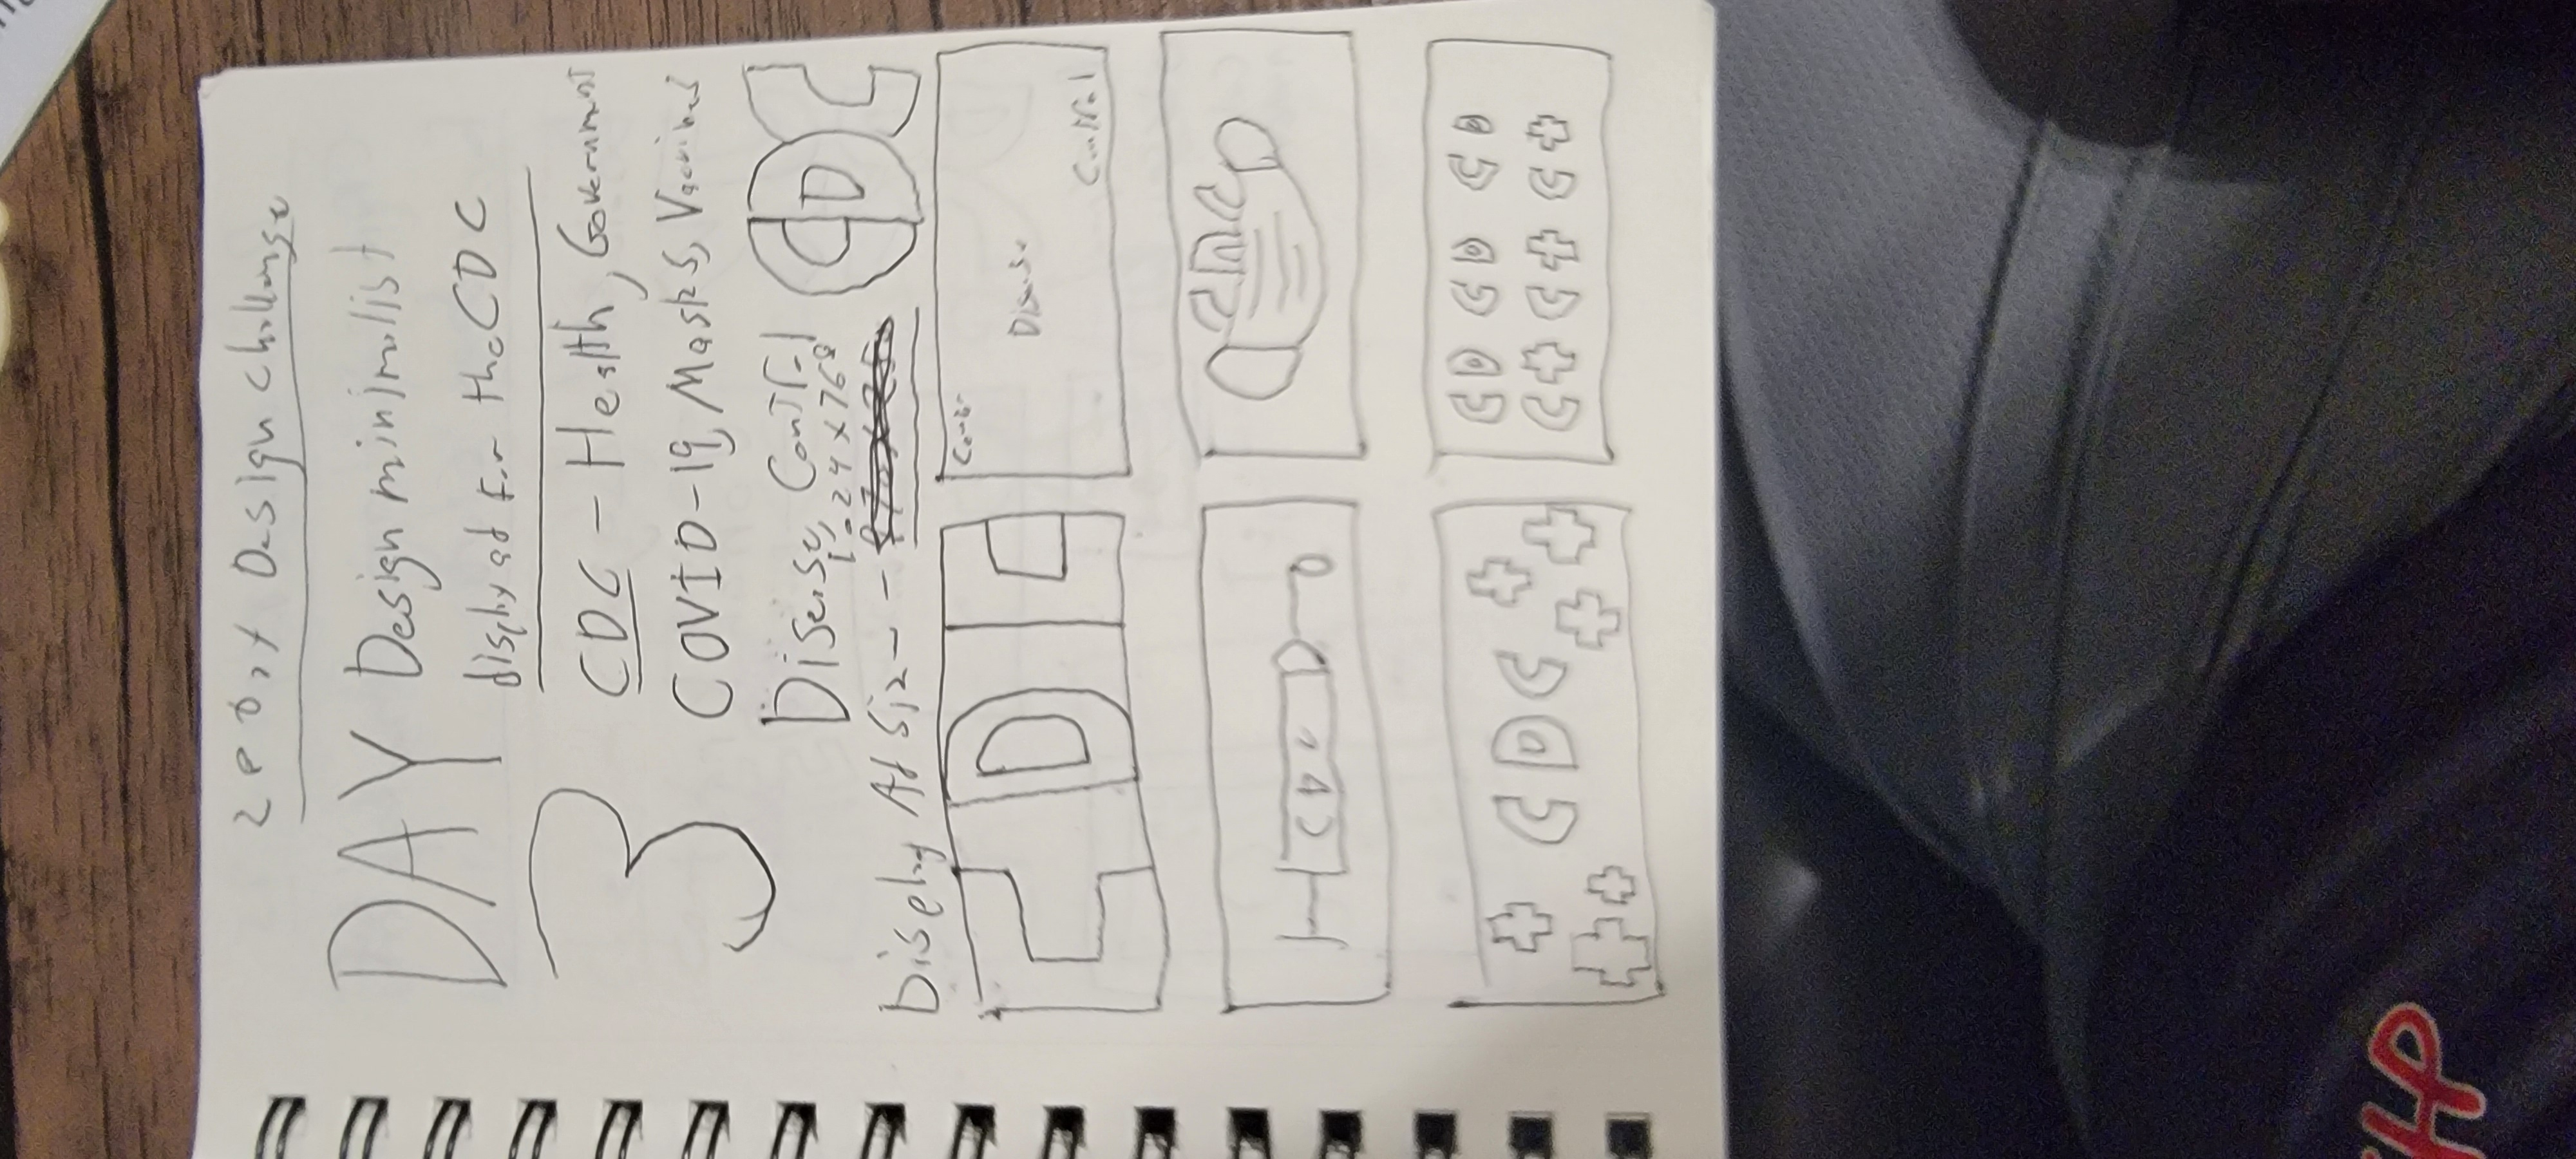 Design Challenge
DAY
3
Design minimalist
display ad for the CDC
CDC - Health, Government
COVID-19, Masks, Vaccines
Disease, Control
CDC
1024x768
Display Ad Size -
CDC
Center
Disease
Control
CDC
CDC
CDC
CD CD CD
C C C
HP